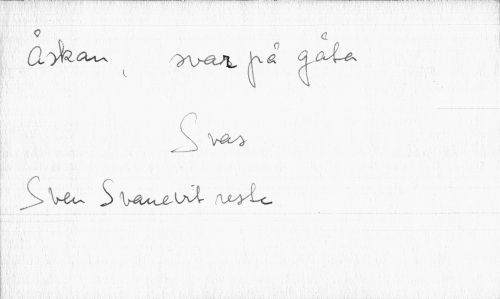 Åskan, svar på gåta
Svar
Sven Svanevit reste